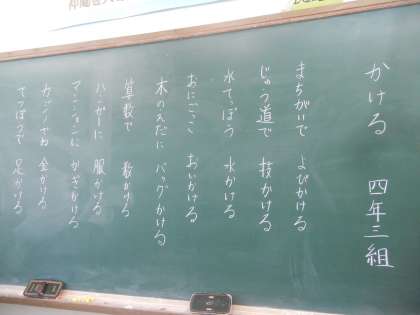 かける 四年三組
まちがいで よびかける
じゅう道で 技かける
水てっぽう 水かける
おにごっこ おいかける
木のえだに バッグかける
算数で 数かける
ハンガーに 服かける
マンションに かぎかける
カジノでね 金かける
てつぼうで 足かける